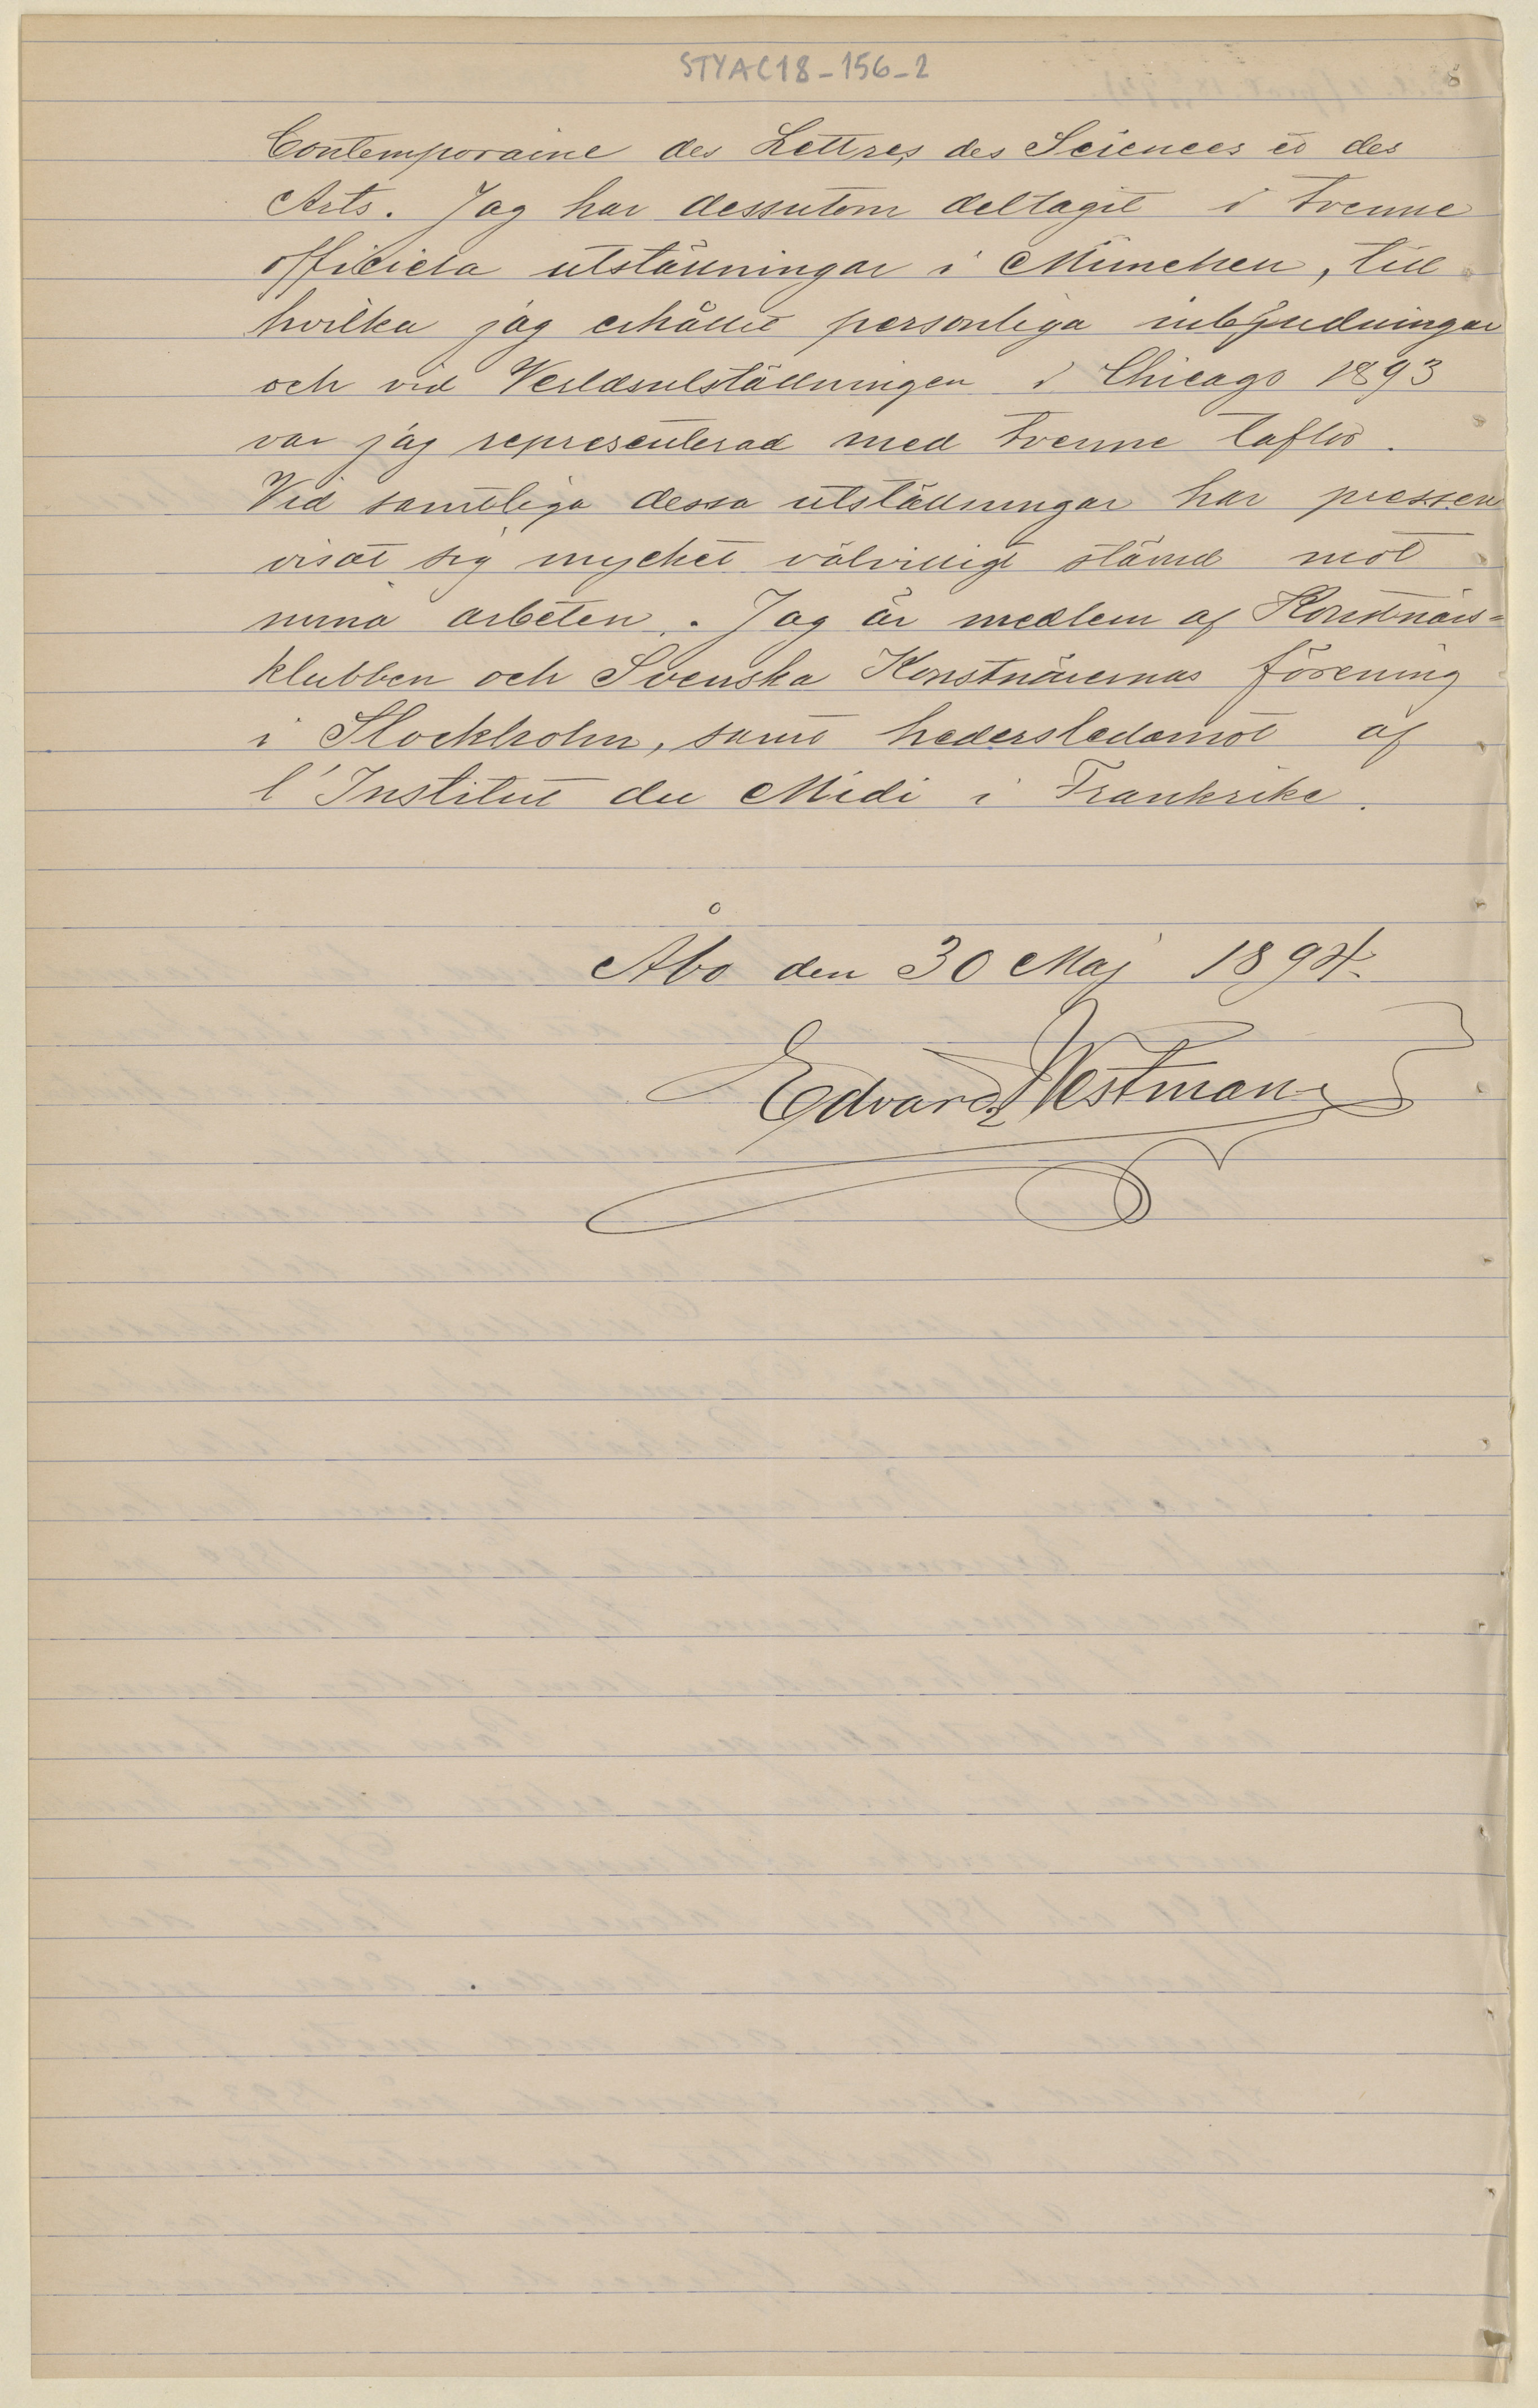 STYAC18-156-2
8
Contemporaine des Lettres, des Sciences et des
Arts. Jag har dessutom deltagit i tvenne
officiela utställningar i München, till
hvilka jag erhållit personliga inbjudningar
och vid Verldsutställningen i Chicago 1893
var jag representerad med tvenne taflor.
Vid samtliga dessa utställningar har pressen
visat sig mycket välvilligt stämd mot
mina arbeten. Jag är medlem af Konstnärs-
klubben och Svenska Konstnärernas förening
i Stockholm, samt hedersledamot af
l'Institut du Midi i Frankrike.
Åbo den 30 Maj 1894.
Edvard Westman